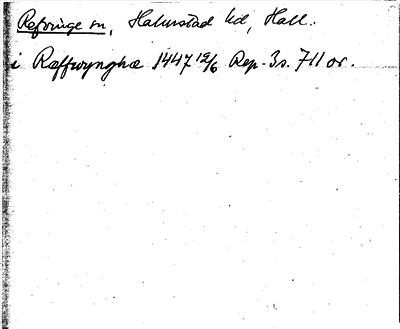 Refvinge sn, Halmstad hd, Hall.
i Ræffwynghæ 1447 12/6 Rep. 3 s. 711 or.